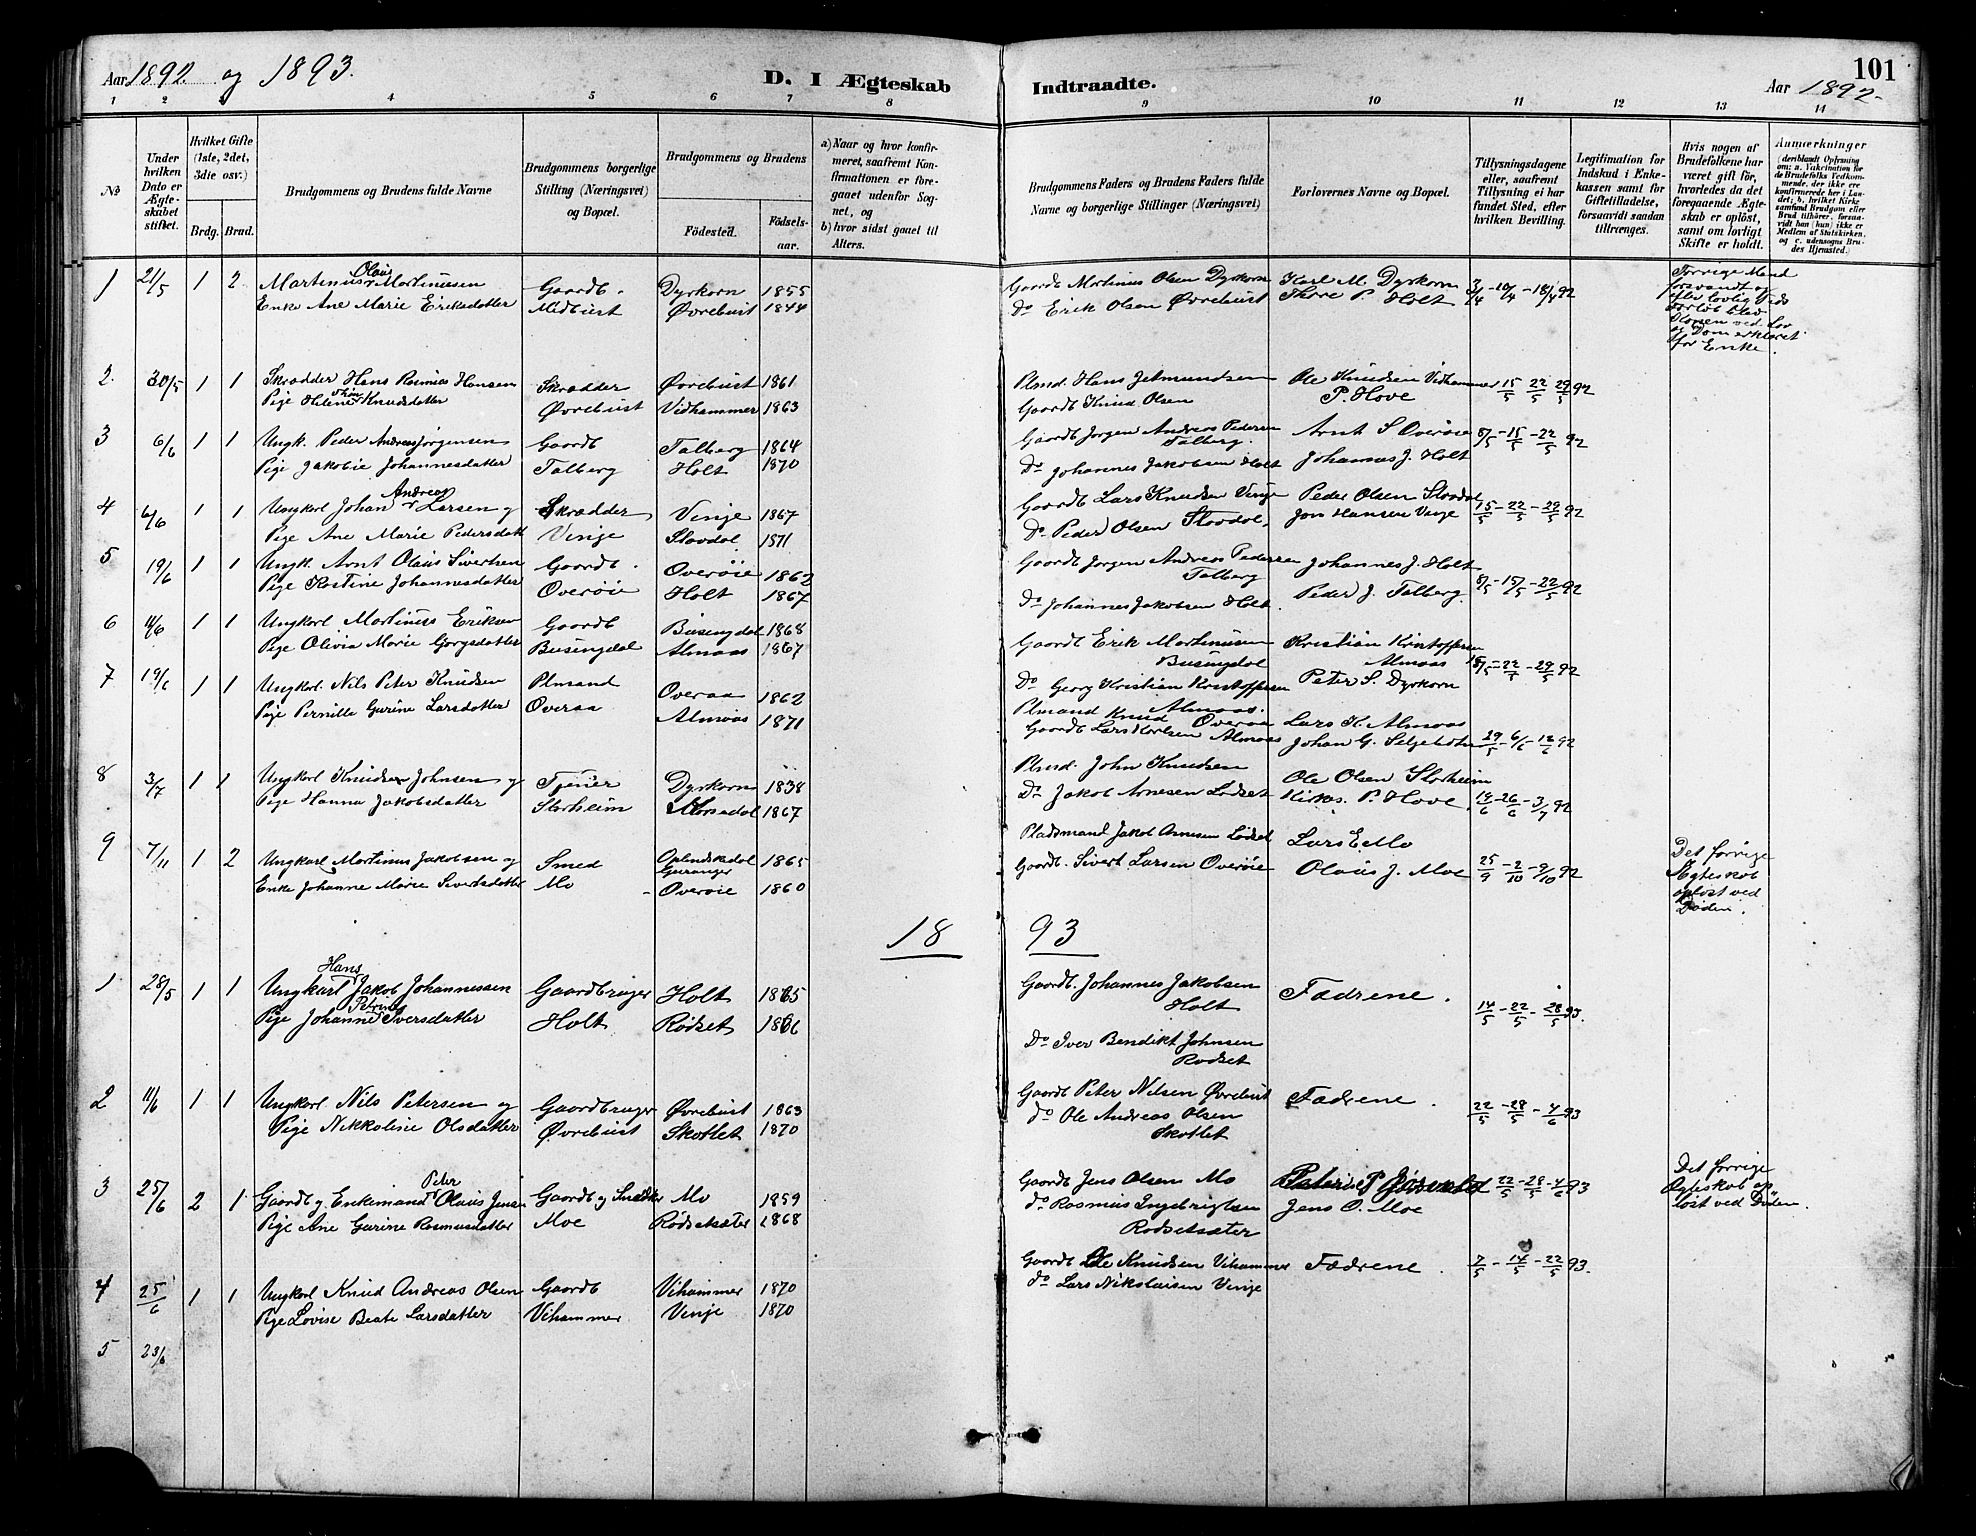 Aar 1892 og 1893.
D. I Ægteskab Indtraadte.
101
Aar 1892-
1 2 3 4 5 6 7 8 9 10 11 12 13 14
№
Under hvilken Dato er Ægteskabet stiftet.
Hvilket Gifte (1ste, 2det, 3die osv.)
Brdg. Brud.
Brudgommens og Brudens fulde Navne
Brudgommens borgerlige Stilling (Næringsvei) og Bopæl.
Brudgommens og Brudens
Fødested. Fødselsaar.
a) Naar og hvor konfirmeret, saafremt Konfirmationen er foregaaet udenfor Sognet, og
b) hvor sidst gaaet til Alters.
Brudgommens Faders og Brudens Faders fulde Navne og borgerlige Stillinger (Næringsvei)
Forlovernes Navne og Bopæl.
Tillysningsdagene eller, saafremt Tillysning ei har fundet Sted, efter hvilken Bevilling.
Legitimation for Indskud i Enkekassen samt for Giftetilladelse, forsaavidt saadan tiltrænges.
Hvis nogen af Brudefolkene har været gift før, hvorledes da det foregaaende Ægteskab er opløst, samt om lovligt Skifte er holdt.
Anmærkninger
(deriblandt Oplysning om: a. Vakcination for de Brudefolks Vedkommende, der ikke ere konfirmerede her i Landet; b. hvilket Kirkesamfund Brudgom eller Brud tilhører, forsaavidt han (hun) ikke er Medlem af Statskirken, og c. udensogns Brudes Hjemsted.)
1 21/5 1 2 Martinus Olaus Martinussen Gaardb. Dyrkorn 1855 Gaardb Martinus Olsen Dyrkorn Karl M. Dyrkorn 3/4 - 10/4 - 18/4 92
Enke Ane Marie Eriksdatter Midbust Øvrebust 1844 Do Erik Olsen Øvrebust Thore P. Holt
Forrige Mand
forsvandt og
efter lovlig Tids
Forløb blev
Konen ved Lov
og Dom erklæret
for Enke.
2. 30/5 1 1 Skrædder Hans Rasmus Hansen Skrædder Øvrebust 1861 Plmd. Hans Jetmundsen Ole Knudsen Vidhammer 15/5 22/5 29/5 92
Pige Helene Knudsdatter Øvrebust Vidhammer 1863 Gaardb Knud Olsen P. Hove
3 6/6 1 1 Ungk. Peder Andreas Jørgensen Gaardb Talberg 1864 Gaardb Jørgen Andreas Pedersen Talberg. Arnt S Overøie 8/5 - 15/5 - 22/5 92
Pige Jakobie Johannesdatter Talberg Holt 1870 Do Johannes Jakobsen Holt Johannes J. Holt
4 6/6 1 1 Ungkarl Johan Andreas Larsen og Skrædder Vinje 1867 Gaardb Lars Knudsen Vinje Peder Olsen Stavdal 15/5 - 22/5 - 29/5 92
Pige Ane Marie Pedersdatt Vinje Stavdal 1871 Do Peder Olsen Stavdal. Jon Hansen Vinje
5 19/6 1 1 Ungk. Arnt Olaus Sivertsen Gaardb. Overøie 1862 Gaardb Jørgen Andreas Pedersen Talberg Johannes J. Holt 8/5 - 15/5 - 22/5 92
Pige Kastine Johannesdatter Overøie Holt 1867 Do Johannes Jakobsen Holt Peder J. Talberg.
6 11/6 1 1 Ungkarl Martinus Eriksen Gaardb Busengdal 1868 Gaardb Erik Martinussen Busengdal Kristian Kristoffersen Almaas 15/5 - 22/5 - 29/5 92
Pige Olivia Marie Gjorgsdatter Busingdal Almaas 1867 Do Georg Kristian Kristoffersen Almaas. Peter S. Dyrkorn
7 19/6 1 1 Ungkarl. Nils Peter Knudsen Plmand Overaa 1862 Plmand Knud Overaa Lars K. Almaas 29/5 - 6/6 - 12/6 92
Pige Pernille Gurine Larsdatter Overaa Almaas 1871 Gaardb Lars Karlsen Almaas Johan G.
8 3/7 1 1 Ungkarl Knudsen Johnsen og Tjener Dyrkorn 1838 Plmd. John Knudsen Ole Olsen Storheim 19/6 - 26/6 - 3/7 92
Pige Hanna Jakobsdatter Storheim 1867 Do Jakob Arnesen Lødset Kirkes. P. Hove.
9 7/11 1 2 Ungkarl Martinus Jakobsen og Smed Oplendskedal Geiranger 1865 Pladsmand Jakob Arnesen Lødset Lars E Mo 25/9 - 2/10 - 9/10 92
Enke Johanne Marie Sivertsdatter Mo - Overøie 1860 Gaardb. Sivert Larsen Overøie Olaus J. Moe
Det forrige
Ægteskab
opløst ved
Døden.
18 93
1 28/5 1 1 Ungkarl Hans Jakob Johannessen Gaardbruger Holt 1865 Gaardb. Johannes Jakobsen Holt Fædrene. 14/5 - 22/5 - 28/5 93.
Pige Johanne Petrine Iversdatter Holt Rødset 1866 Do Iver Benedikt Johnsen Rødset
2 11/6 1 1 Ungkarl. Nils Petersen og Gaardbruger Øvrebust 1863 Gaardb Peter Nilsen Øvrebust Fædrene. 22/5 - 28/5 - 4/6 93
Pige Nikkoline Olsdatter Øvrebust Skotlet 1870 do Ole Andreas Olsen Skotlet
3 25/6 2 1 Gaardb og Enkemand Peter Olaus Jensen Gaardb og Snedker Mo 1859 Gaardb Jens Olsen Mo 22/5 - 28/5 - 4/6 93
Pige Ane Gurine Rasmusdatter Moe Rødsetsæter 1868 do Rasmus Ingebrigtsen Rødsetsæter Jens O. Moe
Det forrige
Ægteskab op
løst ved Døden.
4 25/6 1 1 Ungkarl Knud Andreas Olsen Gaardb Vihammer 1870 Gaardb Ole Knudsen Vihammer Fædrene. 7/5 - 14/5 - 22/5 93.
Pige Lovise Beate Larsdatter Vihammer Venje 1870 do Lars Nikolaisen Venje
5 23/6